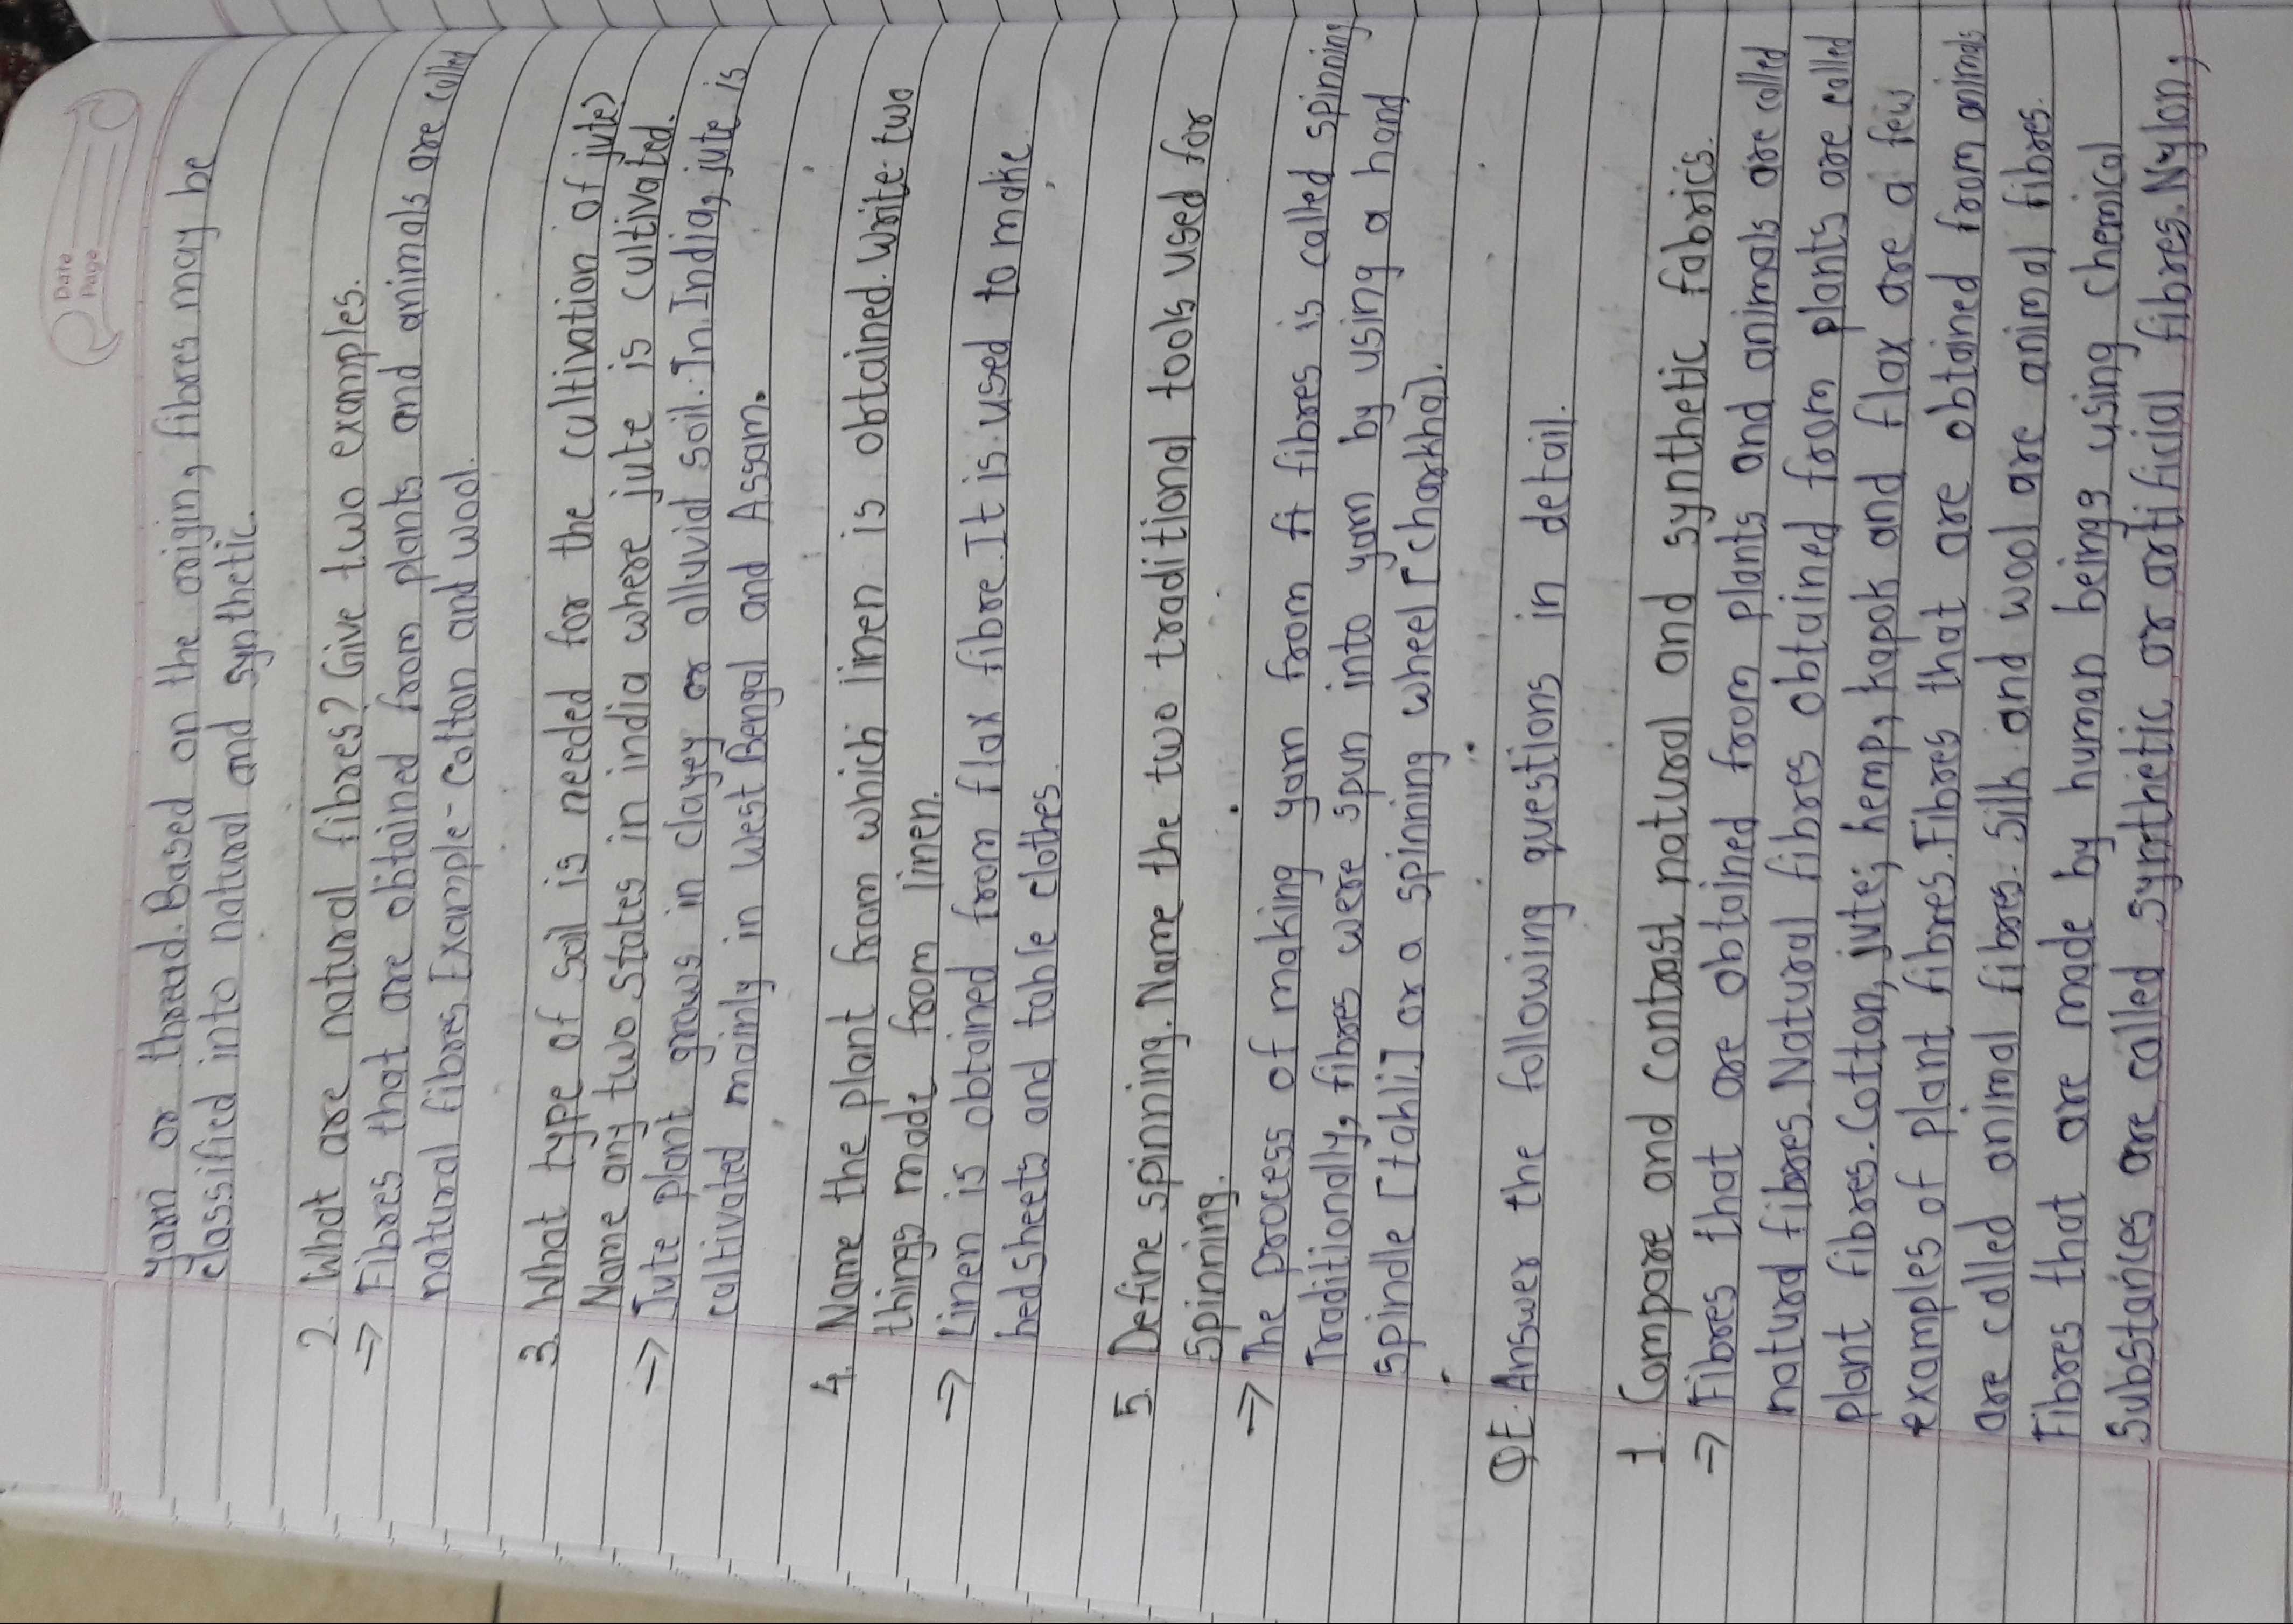 Date
Page
yarn or thread. Based on the origin, fibres may be
classified into natural and synthetic.
2. What are natural fibres? Give two examples.
→ Fibres that are obtained from plants and animals are called
natural fibres. Example- cotton and wool.
3. What type of soil is needed for the cultivation of jute?
Name any two states in india where jute is cultivated.
→ Jute plant grows in clayey or alluvial soil. In India, jute is
cultivated mainly in west Bengal and Assam.
4. Name the plant from which linen is obtained. Write two
things made from linen.
→ Linen is obtained from flax fibre. It is used to make
bedsheets and table clothes
5. Define spinning. Name the two traditional tools used for
spinning.
→ The process of making yarn from fi fibres is called spinning
Traditionally, fibres were spun into yarn by using a hand
spindle [takli] or a spinning wheel [charkha].
QE. Answer the following questions in detail.
1. Compare and contrast natural and synthetic fabrics.
→ Fibres that are obtained from plants and animals are called
natural fibres. Natural fibres obtained from plants are called
plant fibres. Cotton, jute, hemp, kapok and flax are a few
examples of plant fibres. Fibres that are obtained from animals
are called animal fibres. Silk and wool are animal fibres.
Fibres that are made by human beings using chemical
substances are called synthetic or artificial fibres. Nylon,